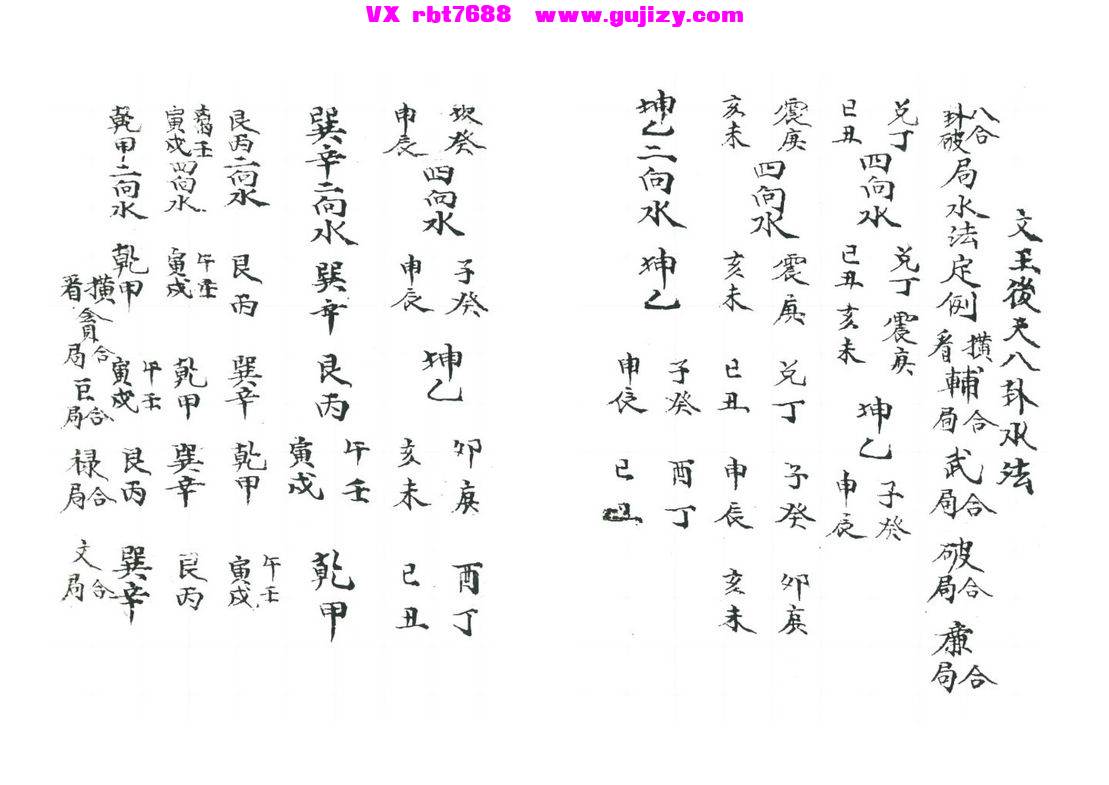 VX rbt7688 www.gujizy.com
文王後天八卦水法
八合
卦破
局水法定例
橫看
輔合局
武合局
破合局
廉合局
兑丁
巳丑
四向水
兑丁
巳丑
震庚
亥未
坤乙
子癸
申辰
震庚
亥未
四向水
震庚
亥未
兑丁
巳丑
子癸
申辰
卯庚
亥未
坤乙二向水
坤乙
子癸
申辰
酉丁
巳丑
坎癸
申辰
四向水
子癸
申辰
坤乙
卯庚
亥未
酉丁
巳丑
巽辛二向水
巽辛
艮丙
午壬
寅戌
乾甲
艮丙二向水
艮丙
巽辛
乾甲
午壬
寅戌
壬
寅戌
四向水
午壬
寅戌
乾甲
巽辛
艮丙
乾甲二向水
乾甲
午壬
寅戌
艮丙
巽辛
橫看
貪合局
巨合局
禄合局
文合局